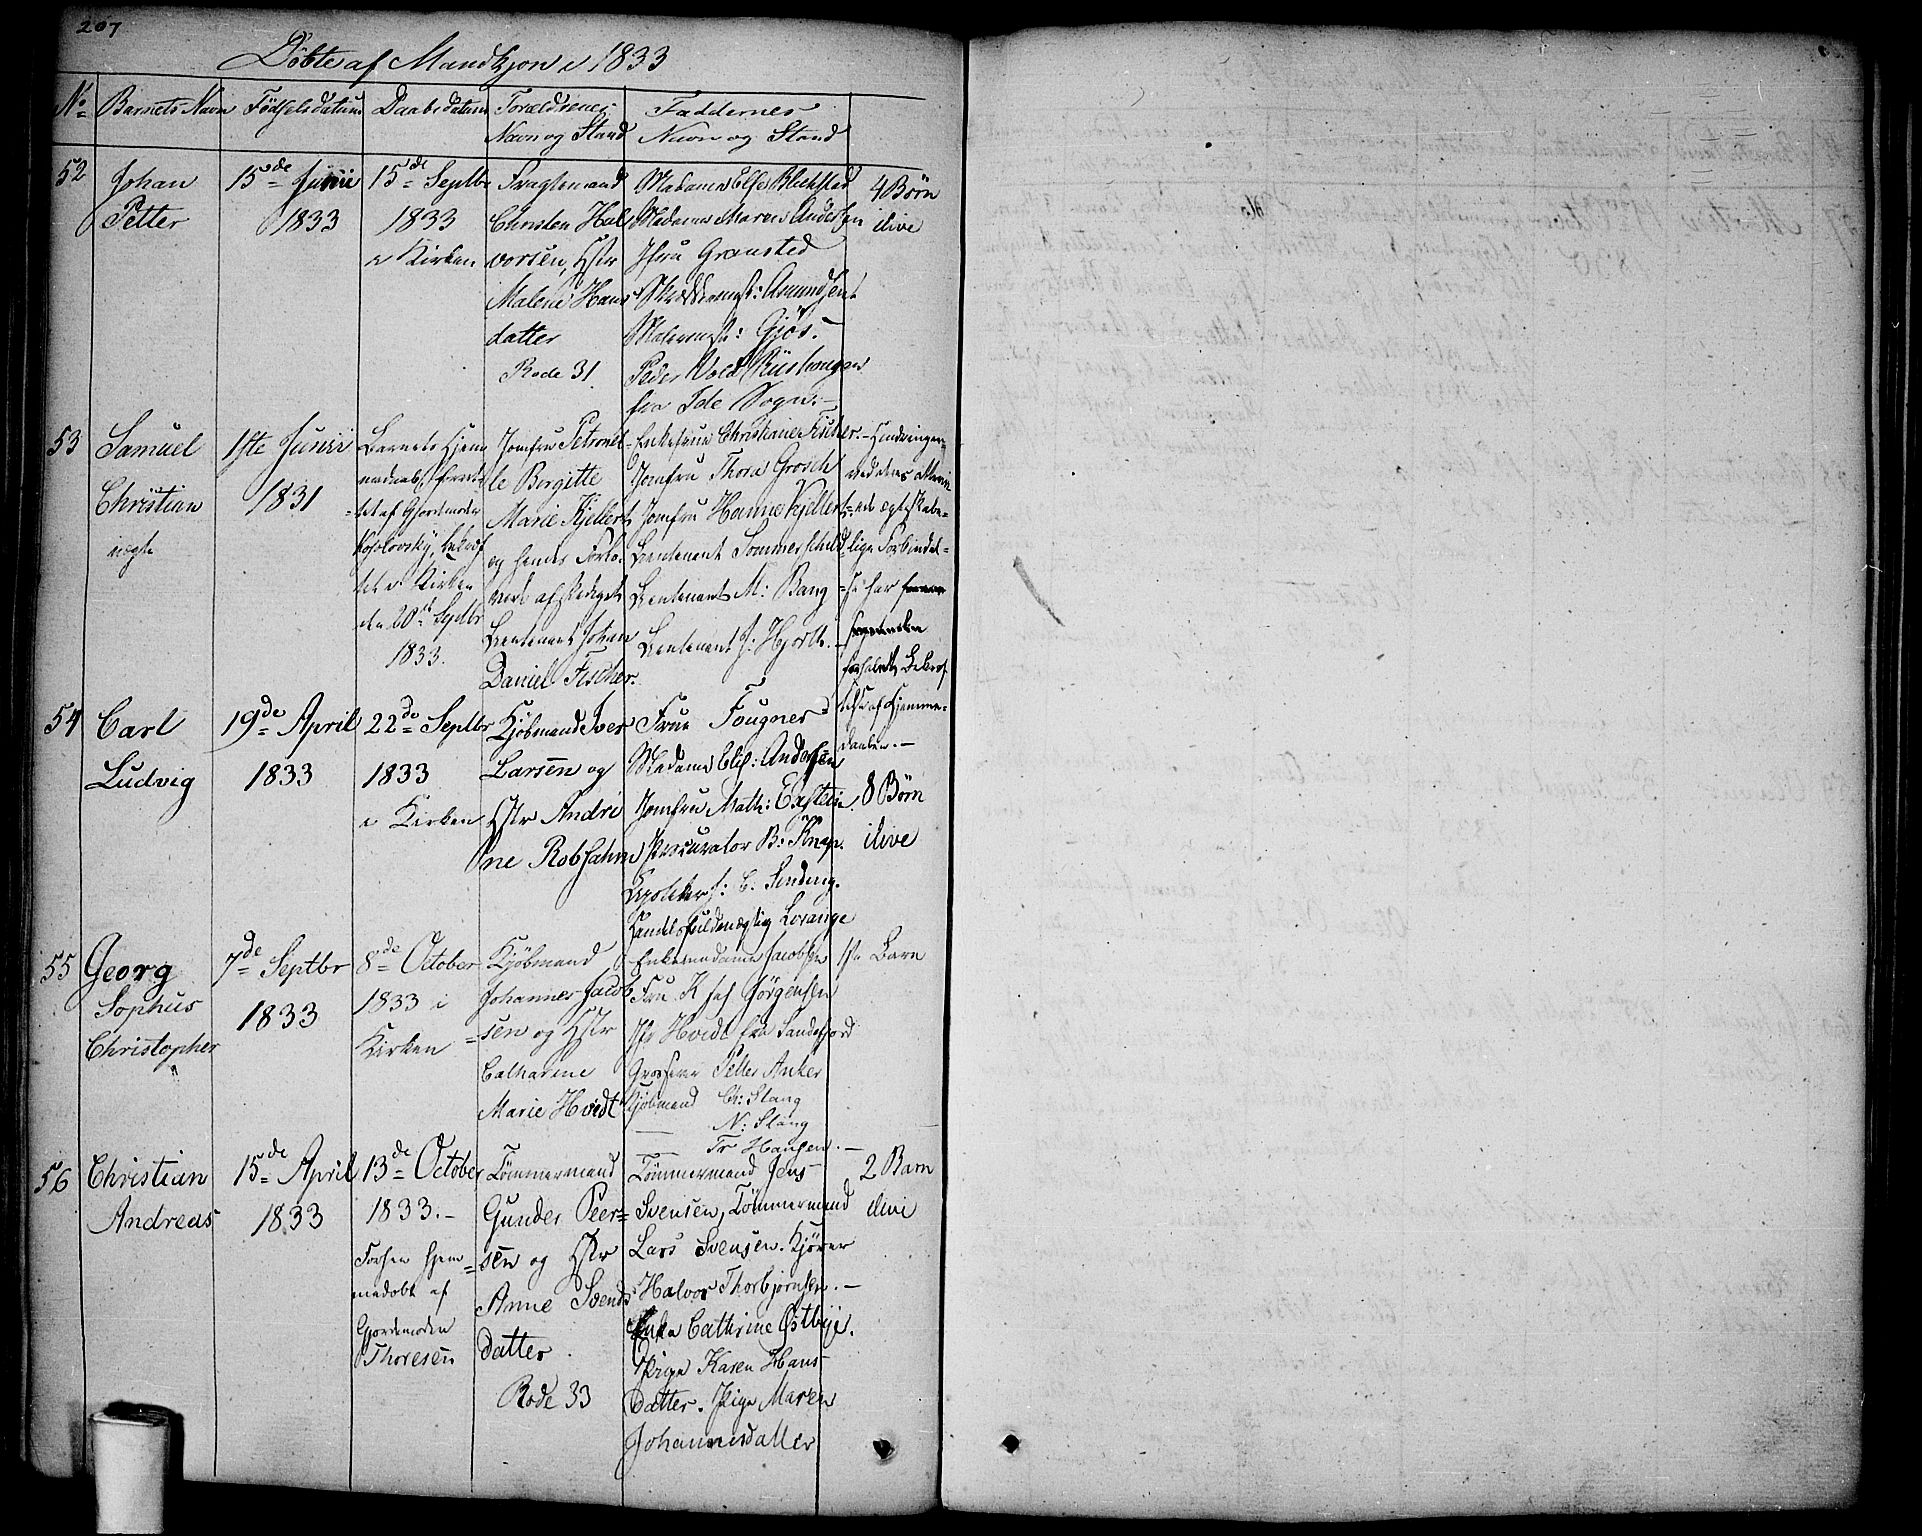 207
Döbte af Mandkjøn i 1833
No Barnets Navn Födselsdatum Daabsdatum Forældrenes Navn og Stand Faddernes Navn og Stand
52
Johan
Petter
15de Junii
1833
15de Septbr
1833
i Kirken
Fragtemand
Christen Hal
vorsen, Hstr
Malene Hans
datter
Rode 31.
Madame Else Blichstad
Madame Maren Andersen
Jfru Gransted
Skræddermst: Amundsen
Malermst: Gjös.
Peder Vold
fra Ide Sogn.
4 Börn
ilive
53
Samuel
Christian
uægte
1ste Junii
1831
Barnets Hjem
medaab, forret-
tet af Gjordemoder
bekræf
tet i Kirken
den 20de Septbr
1833.
Jomfru Petronel
le Birgitte
Marie Kjellert
og hendes Forlo-
vede afskediget
Lieutenant Johan
Daniel Fischer.
Enkefrue Christiane Fischer.
Jomfru Thora Grosch
Jomfru Hanne Kjellert
Lieutenant Sommerschild
Lieutenant M: Bang
Lieutenant J: Hjorth.
Hindringer
ved
egteskabe-
lige Forbindel-
se har
Bekræf
telse af Hjemme-
daaben.
54
Carl
Ludvig
19de April
1833
22de Septbr
1833
i Kirken
Kjöbmand Iver
Larsen og
Hstr Andri
ne Robsahm
Frue Fougner
Madame Elis: Andersen
Jomfru Math: Exstein
Procurator B: Knap.
Apotheker C. Sending.
Handelsfuldmægtig Lorange
8 Börn
ilive
55
Georg
Sophus
Christopher
7de Septbr
1833
8de October
1833 i
Kirken
Kjöbmand
Johannes Jacob
sen og Hstr
Catharine
Marie Hvidt
Enkemadame Jacobsen
Jörgensen
Hvidt fra Sandefjord
Grosserer Petter Anker
Kjöbmand Ch: Stang
— N: Stang
— Fr Hansen.
1ste Barn
56
Christian
Andreas
15de April
1833
13de October
1833.
Forhen hjem
medöbt af
Gjordemoder
Thoresen
Tömmermand
Gunder Peer-
sen og Hstr
Anne Svends
datter.
Rode 33
Tömmermand Jens
Svensen, Tömmermand
Lars Svensen. Kjörer
Halvor Thorbjørnsen.
Enke Cathrine Østbye.
Pige Karen Hans-
datter. Pige Maren
Johannesdatter
2 Barn
ilive